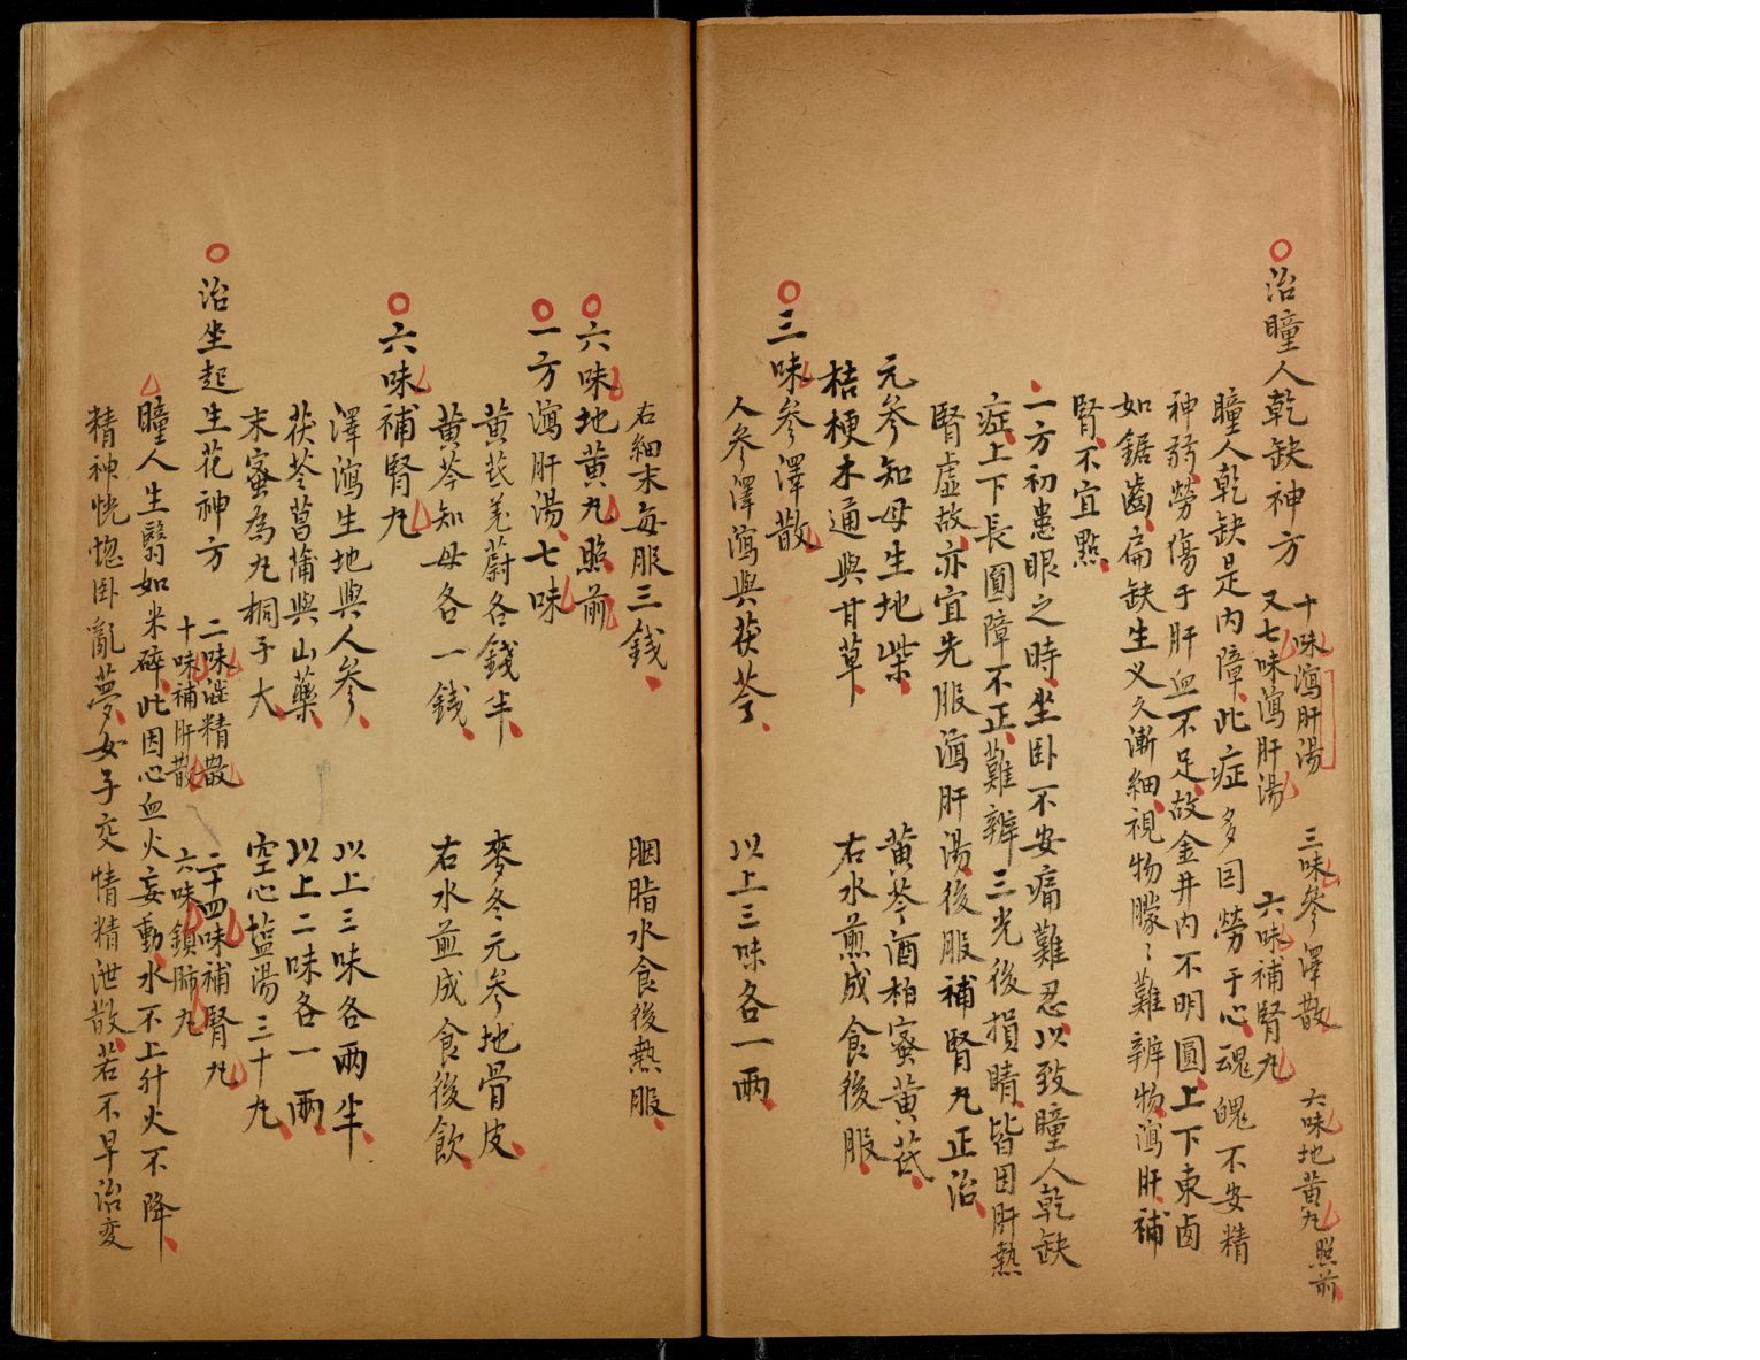 治瞳人乾缺神方
十味瀉肝湯　三味參澤散　六味地黃丸照前
又七味瀉肝湯　六味補腎丸
瞳人乾缺是內障此症多因勞于心魂魄不安精
神弱勞傷于肝血不足故金井內不明圓上下東卤
如鋸齒扁缺生义久漸細視物朦〻難辨物瀉肝補
腎不宜點
一方初患眼之時坐卧不安痛難忍以致瞳人乾缺
症上下長圓障不正難辨三光後損睛皆因肝熱
腎虛故亦宜先服瀉肝湯後服補腎丸正治
元參知母生地柴　黃芩酒柏蜜黃芪
桔梗木通與甘草　右水煎成食後服
三味參澤散
人參澤瀉與茯苓　以上三味各一兩
右細末每服三錢　胭脂水食後熱服
六味地黃丸照前
一方瀉肝湯七味
黃芪羌蔚各錢半　麥冬元參地骨皮
黃芩知母各一錢　右水煎成食後飲
六味補腎丸
澤瀉生地與人參　以上三味各兩半
茯苓菖蒲與山藥　以上二味各一兩
末蜜為丸桐子大　空心塩湯三十丸
治坐起生花神方
二味澁精散　二十四味補腎丸
十味補肝散　六味鎖肺丸
瞳人生翳如米碎此因心血火妄動水不上升火不降
精神恍惚卧亂夢女子交情精泄散若不早治变